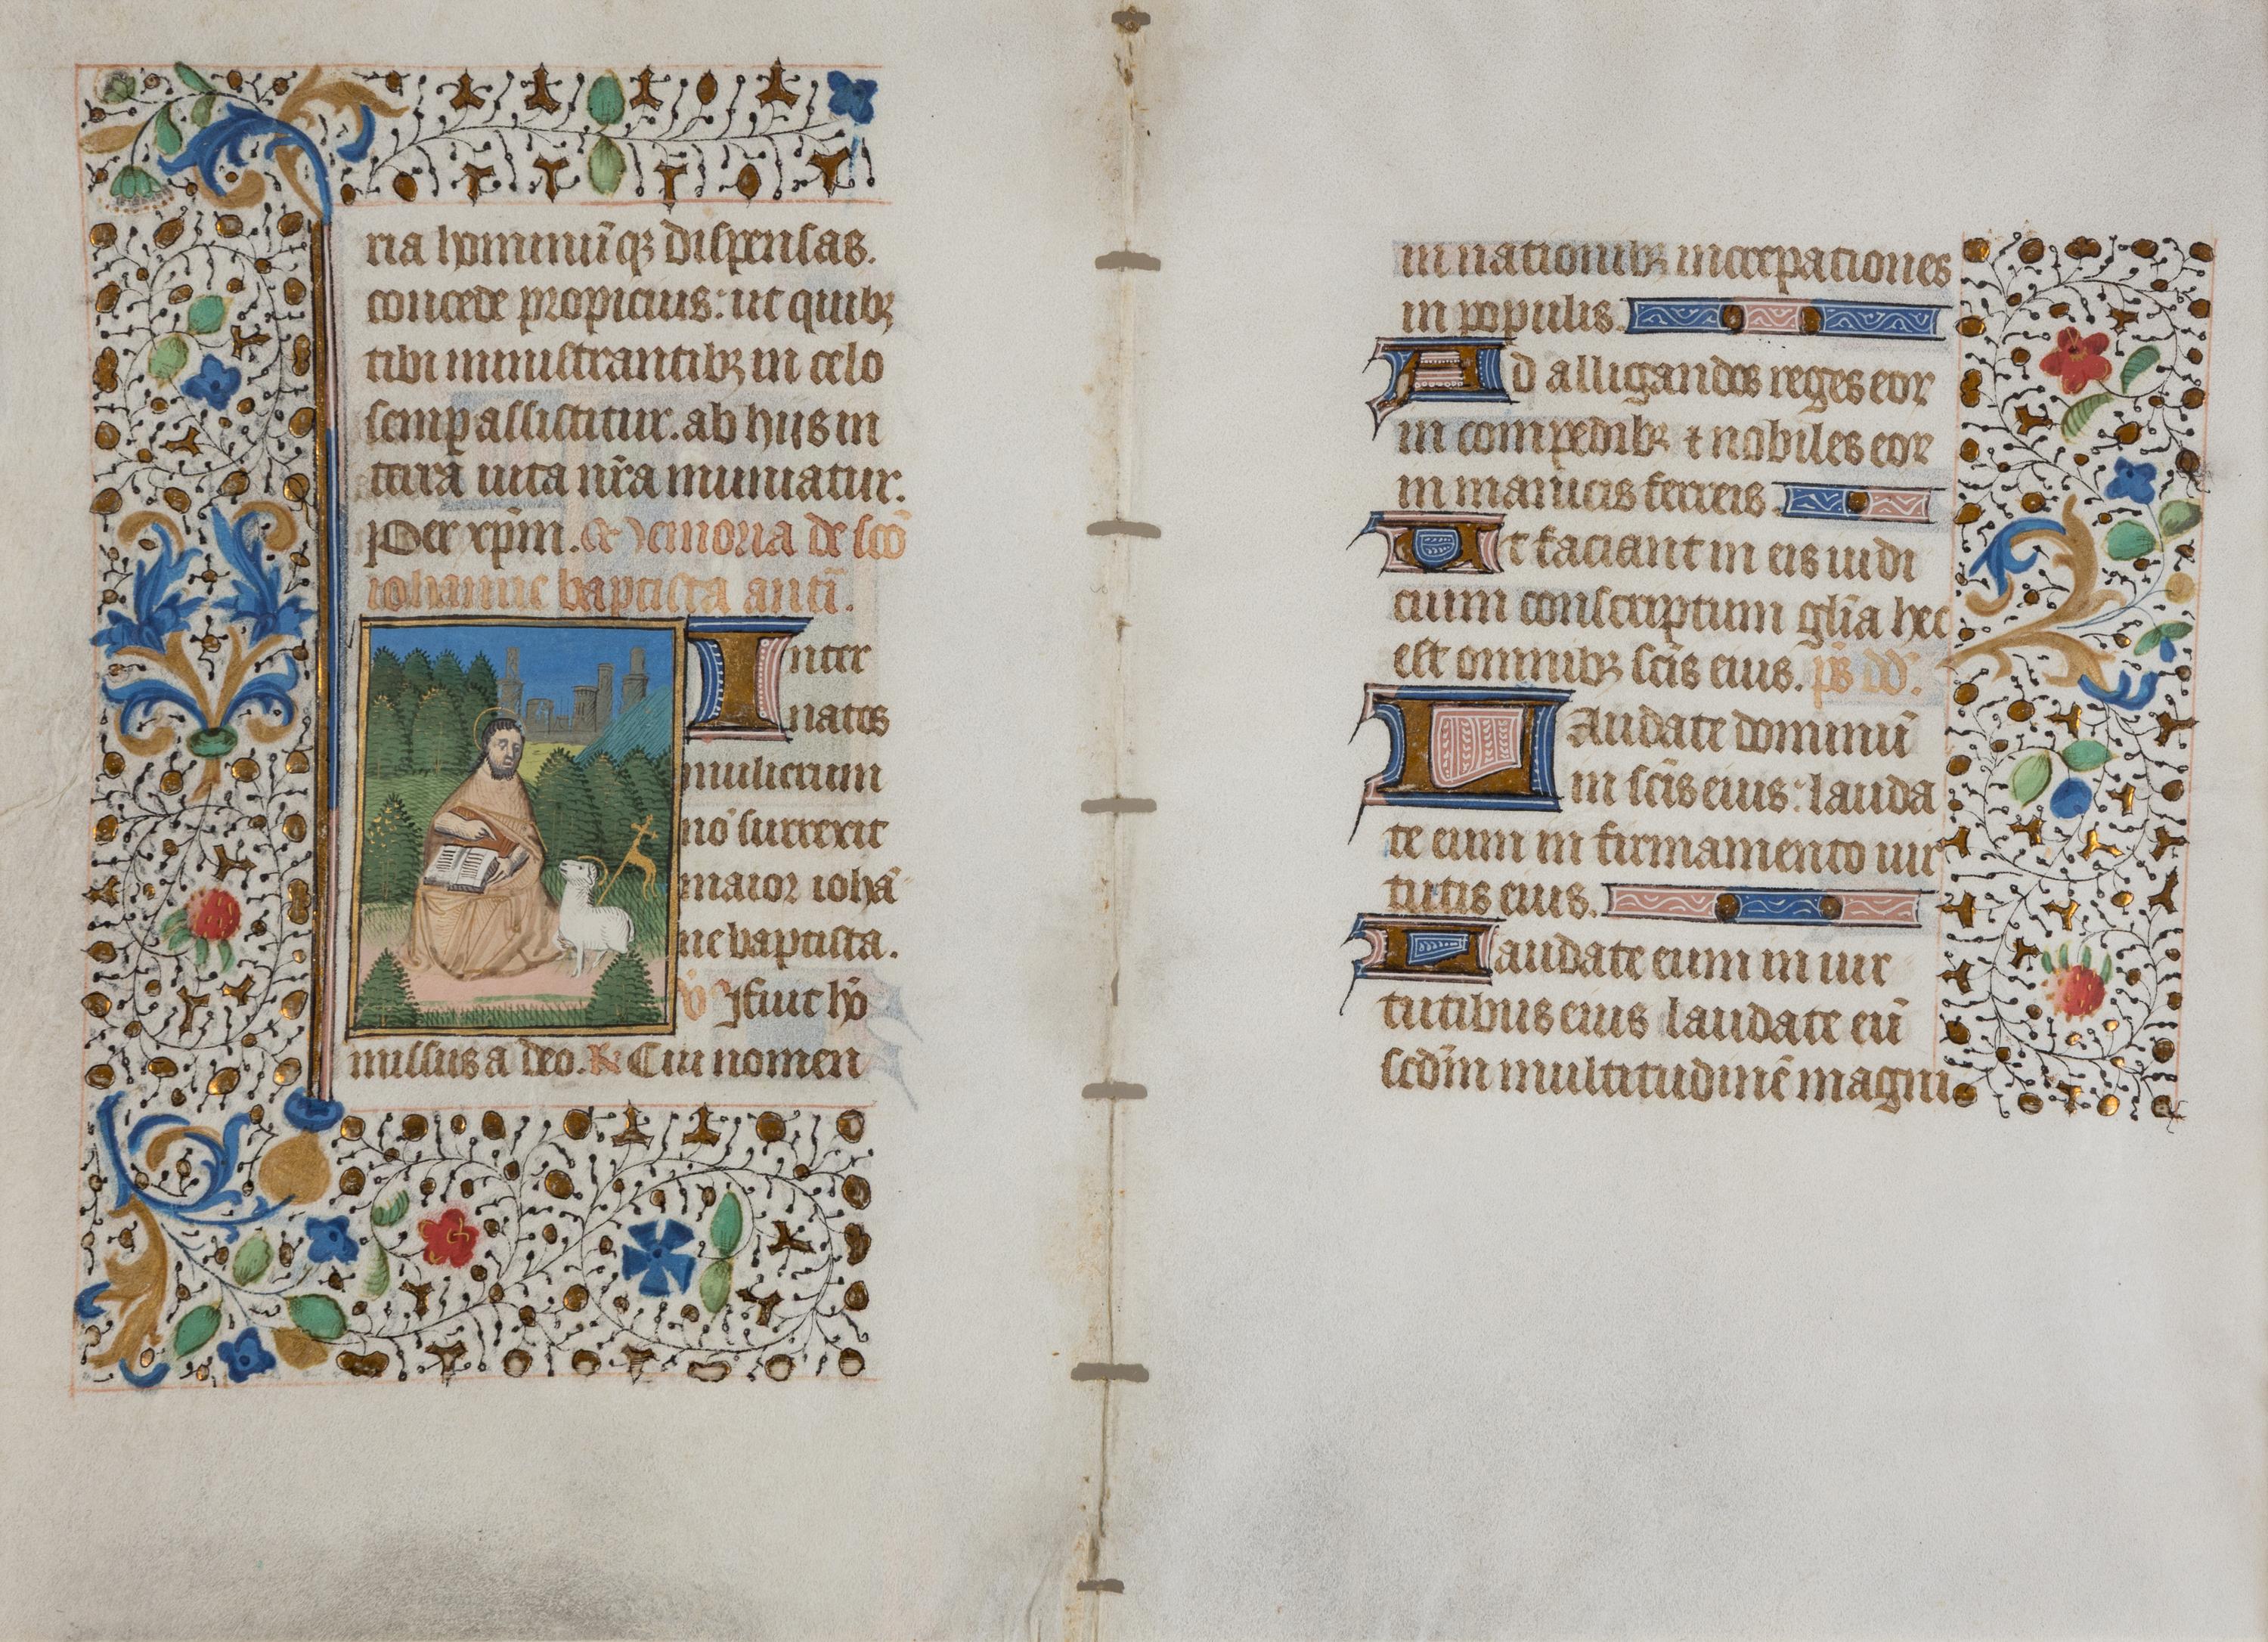 ria hominūqꝫ dispensas.
concede propicius: ut quibꝫ
tibi ministrantibꝫ in celo
semꝑ assistitur. ab hijs in
terra uita nr̄a muniatur.
Per xp̄m. Memoria de sc̄o
iohanne baptista anti.
Inter
natos
mulierum
nō surrexit
maior iohā
ne baptista.
v̊ Ifuit hō
missus a deo. ℞ Cui nomen
in nationibꝫ increpationes
in populis.
Ad alligandos reges eor
in compedibꝫ ⁊ nobiles eor
in manicis ferreis.
Vt faciant in eis iudi
cium conscriptum gl̄ia hec
est omnibꝫ sc̄is eius. ps̄ dd̄.
Laudate dominū
in sc̄is eius: lauda
te eum in firmamento uir
tutis eius.
Laudate eum in uir
tutibus eius laudate eū
scd̄m multitudinē magni